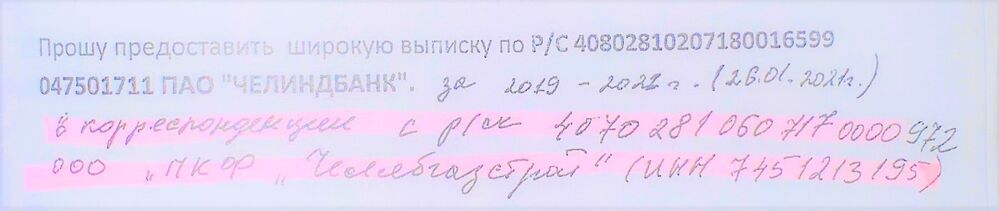 Прошу предоставить широкую выписку по Р/С 40802810207180016599
047501711 ПАО "ЧЕЛИНДБАНК". за 2019 - 2021 г. (26.01.2021г.)
в корреспонденции с р/сч 40702810607170000972
ООО "ПКФ "Челябгазстрой" (ИНН 7451213195)